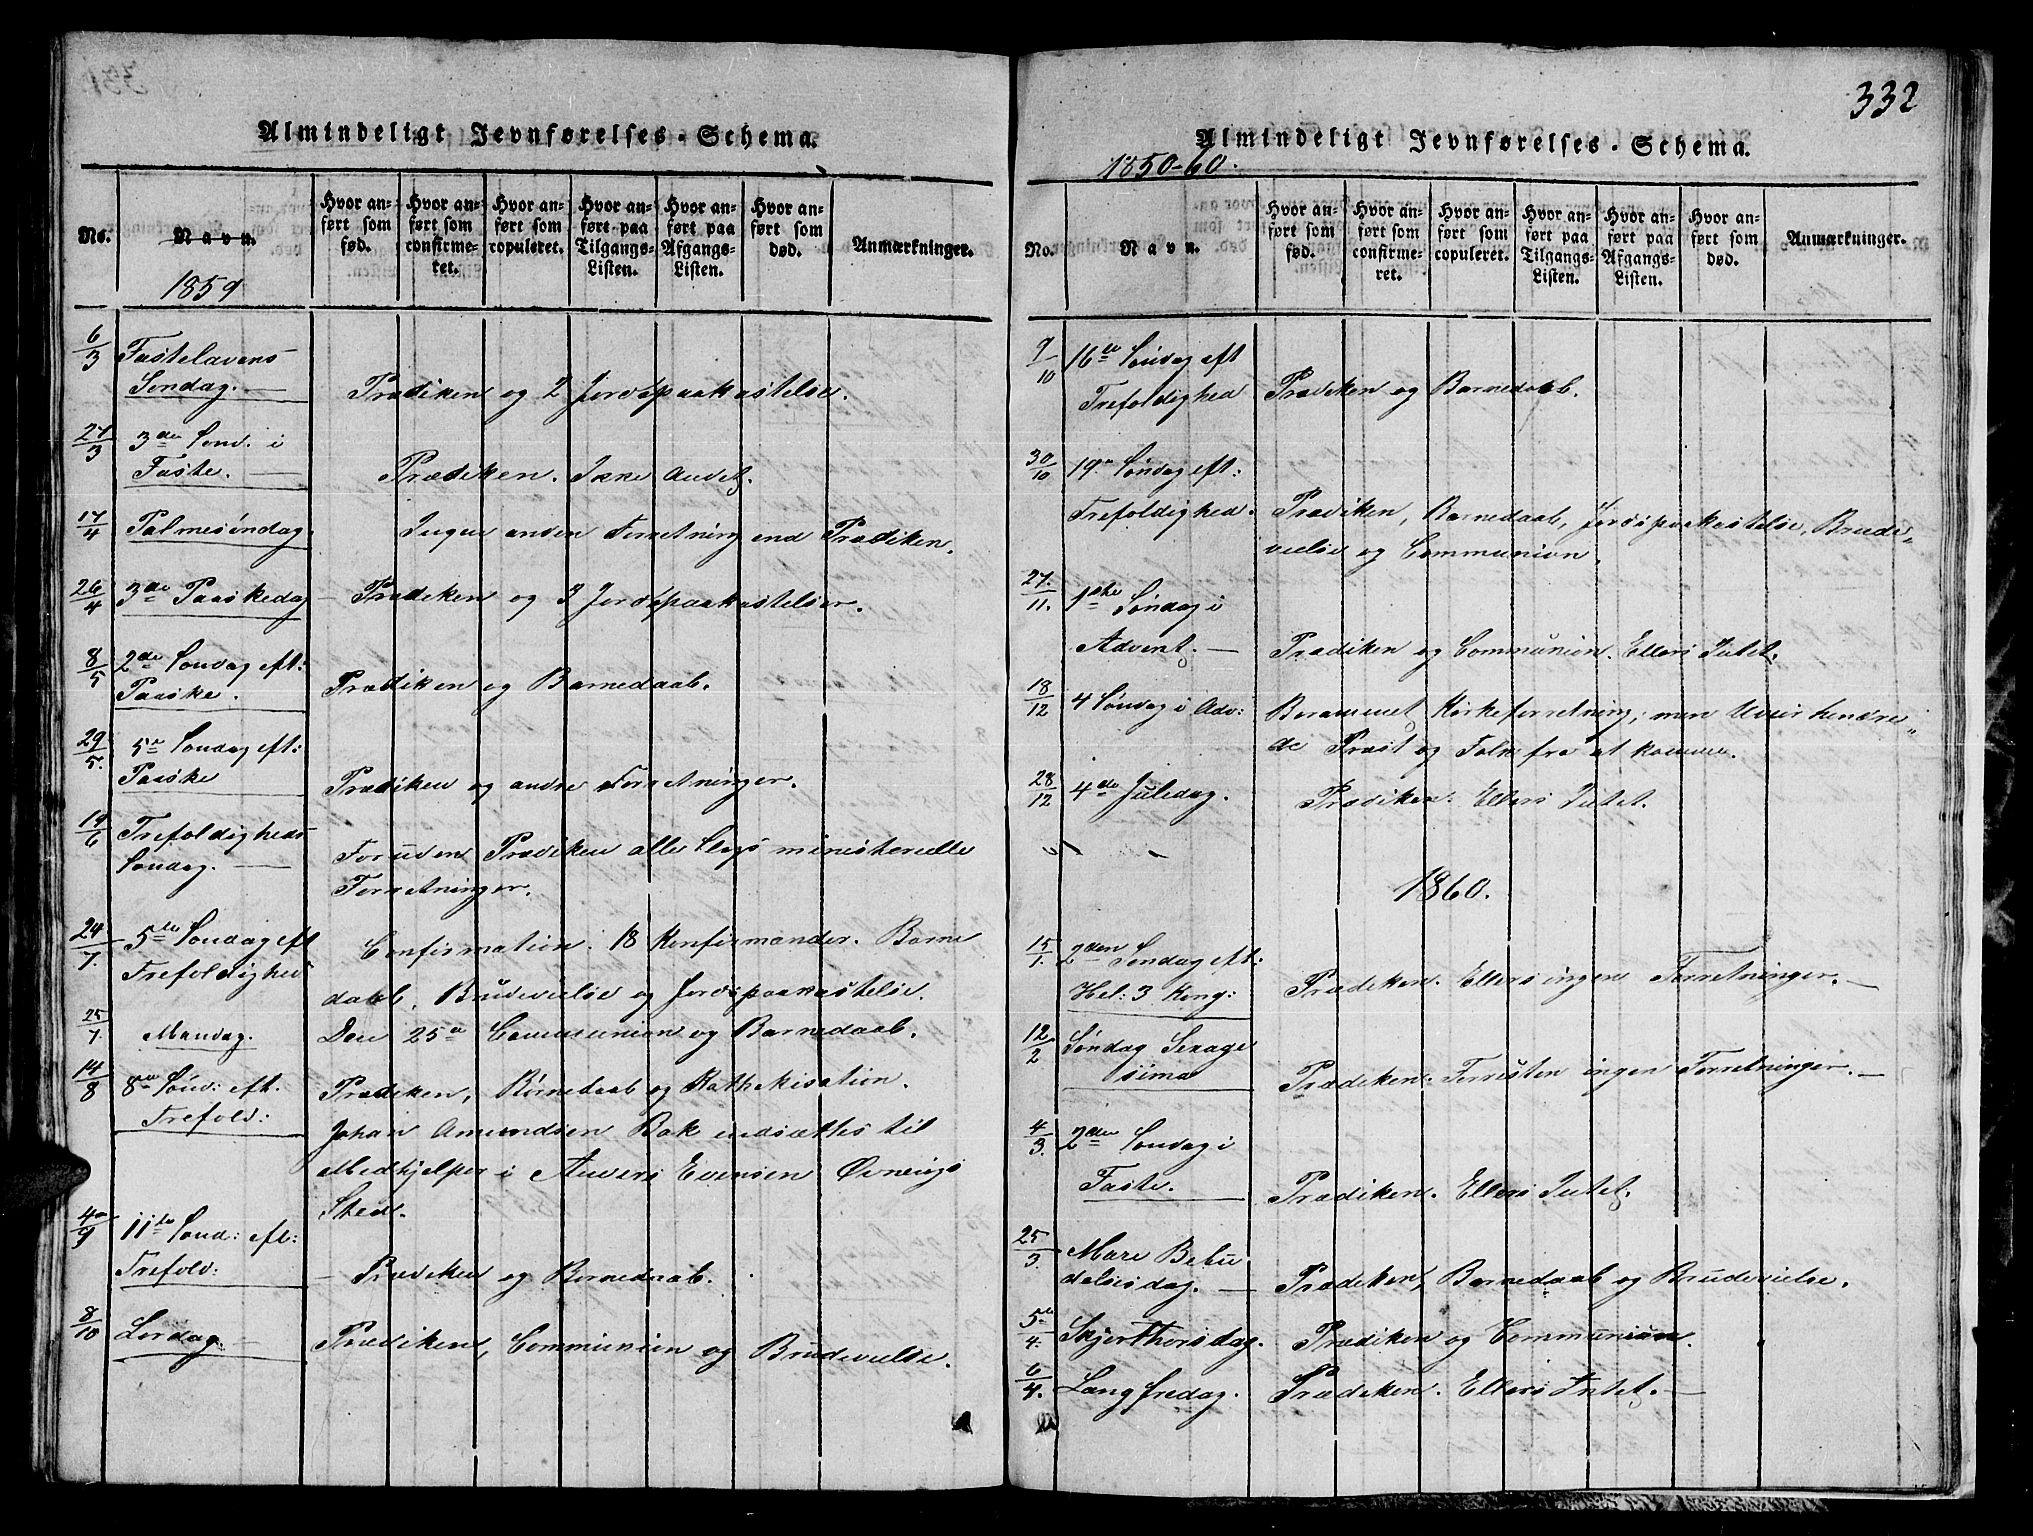 Almindeligt Jevnførelses-Schema.
No.
Navn.
Hvor anført som fød.
Hvor anført som confirmeret.
Hvor anført som copuleret.
Hvor anført paa Tilgangs-Listen.
Hvor anført paa Afgangs-Listen.
Hvor anført som død.
Anmærkninger.
1859
6/3 Fastelavens
Søndag. — Prædiken og 2 Jordspaakastelse.
27/3 3de Sønd. i
Faste. — Prædiken. Ikke Andet.
17/4 Palmesøndag Ingen anden Forretning end Prædiken.
26/4 3de Paaskedag — Prædiken og 3 Jordspaakastelser.
8/5 2de Søndag eft:
Paaske. Prædiken og Barnedaab.
29/5 5te Søndag eft:
Paaske Prædiken og andre Forretninger.
19/6 Trefoldigheds
Søndag. — Foruden Prædiken alle Slags ministerielle
Forretninger.
24/7 5te Søndag eft Confirmation: 18 Konfirmander. Barne
Trefoldighed daab, Brudevielse og Jordspaakastelse.
25/7 Mandag. Den 25de Communion og Barnedaab.
14/8 8de Sønd: eft: Prædiken, Børnedaab og Kathekisation.
Trefold: Johan Amundsen Bak indsættes til
Medhjelper i Anders Evensen Øvneings
Sted.
4/9 11te Sønd: eft:
Trefold: — Prædiken og Barnedaab.
8/10 Lørdag — Prædiken, Communion og Brudevielse.
332
Almindeligt Jevnførelses-Schema.
1850-60.
No.
Navn.
Hvor anført som fød.
Hvor anført som confirmeret.
Hvor anført som copuleret.
Hvor anført paa Tilgangs-Listen.
Hvor anført paa Afgangs-Listen.
Hvor anført som død.
Anmærkninger.
9/10 16de Søndag eft
Trefoldighed Prædiken og Barnedaab.
30/10 19de Søndag eft:
Trefoldighed. Prædiken, Barnedaab, Jordspaakastelse, Brude-
vielse og Communion.
27/11. 1ste Søndag i
Advent. — Prædiken og Communion. Ellers Intet.
18/12 4 Søndag i Adv: Berammet Kirkeforretning, men Uveir hindre-
de Præst og Folk fra at komme.
28/12 4de Juledag. Prædiken. Ellers Intet.
1860.
15/1. 2den Søndag eft:
Hel: 3 Kong: Prædiken. Ellers ingen Forretninger. —
12/2 Søndag Sexage
sima Prædiken. Forresten ingen Forretninger. —
4/3. 2den Søndag i
Faste. Prædiken. Ellers Intet.
25/3. Marie Bebu
delsesdag. — Prædiken, Barnedaab og Brudevielse.
5te/4. Skjerthorsdag. Prædiken og Communion.
6/4. Langfredag. Prædiken. Ellers Intet. —